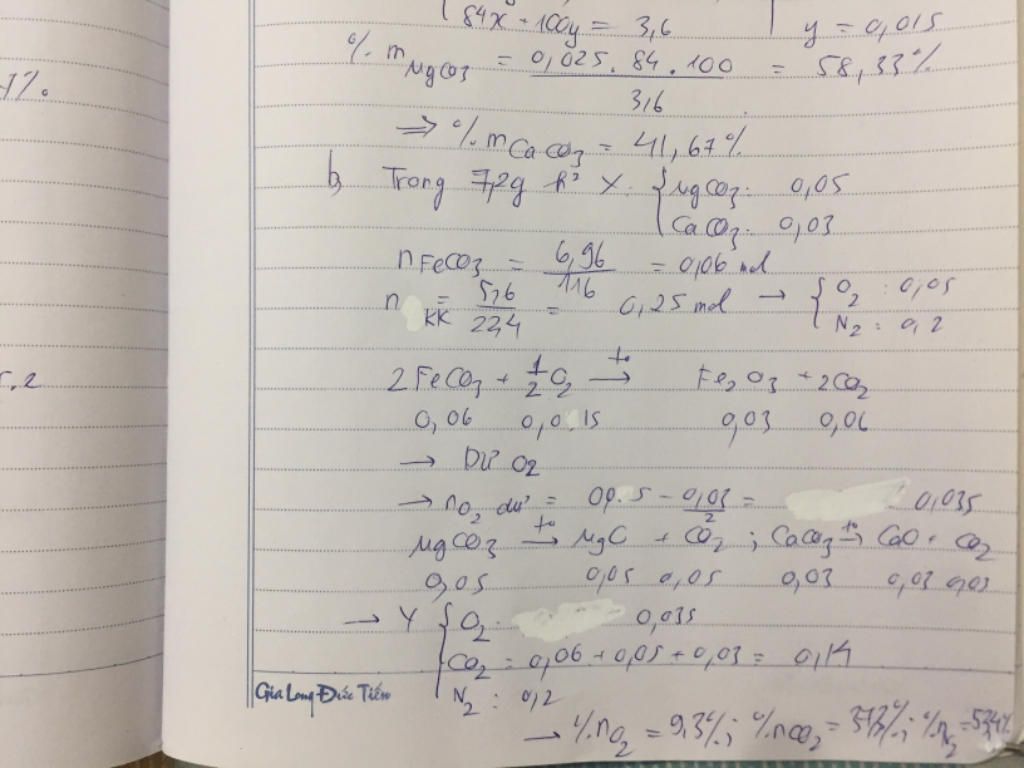 84x + 100y = 3,6 y = 0,015
% m MgCO3 = 0,025. 84 . 100 / 3,6 = 58,33%
1%.
=> % m CaCO3 = 41,67%
b, Trong 7,2g h² X. { MgCO3: 0,05
CaCO3: 0,03
n FeCO3 = 6,96 / 116 = 0,06 mol
n KK = 5,6 / 22,4 = 0,25 mol → { O2 : 0,05
N2 : 0,2
2FeCO3 + 1/2 O2 →to Fe2O3 + 2CO2
.2
0,06 0,015 0,03 0,06
→ Dư O2
→ nO2 dư = 0,05 - 0,03/2 = 0,035
MgCO3 →to MgO + CO2 ; CaCO3 →to CaO + CO2
0,05 0,05 0,05 0,03 0,03 0,03
→ Y { O2 0,035
CO2 = 0,06 + 0,05 + 0,03 = 0,14
N2 : 0,2
Gia Long Đức Tiến
→ % nO2 = 9,3%; % nCO2 = 37,3%; % N2 = 53,4%